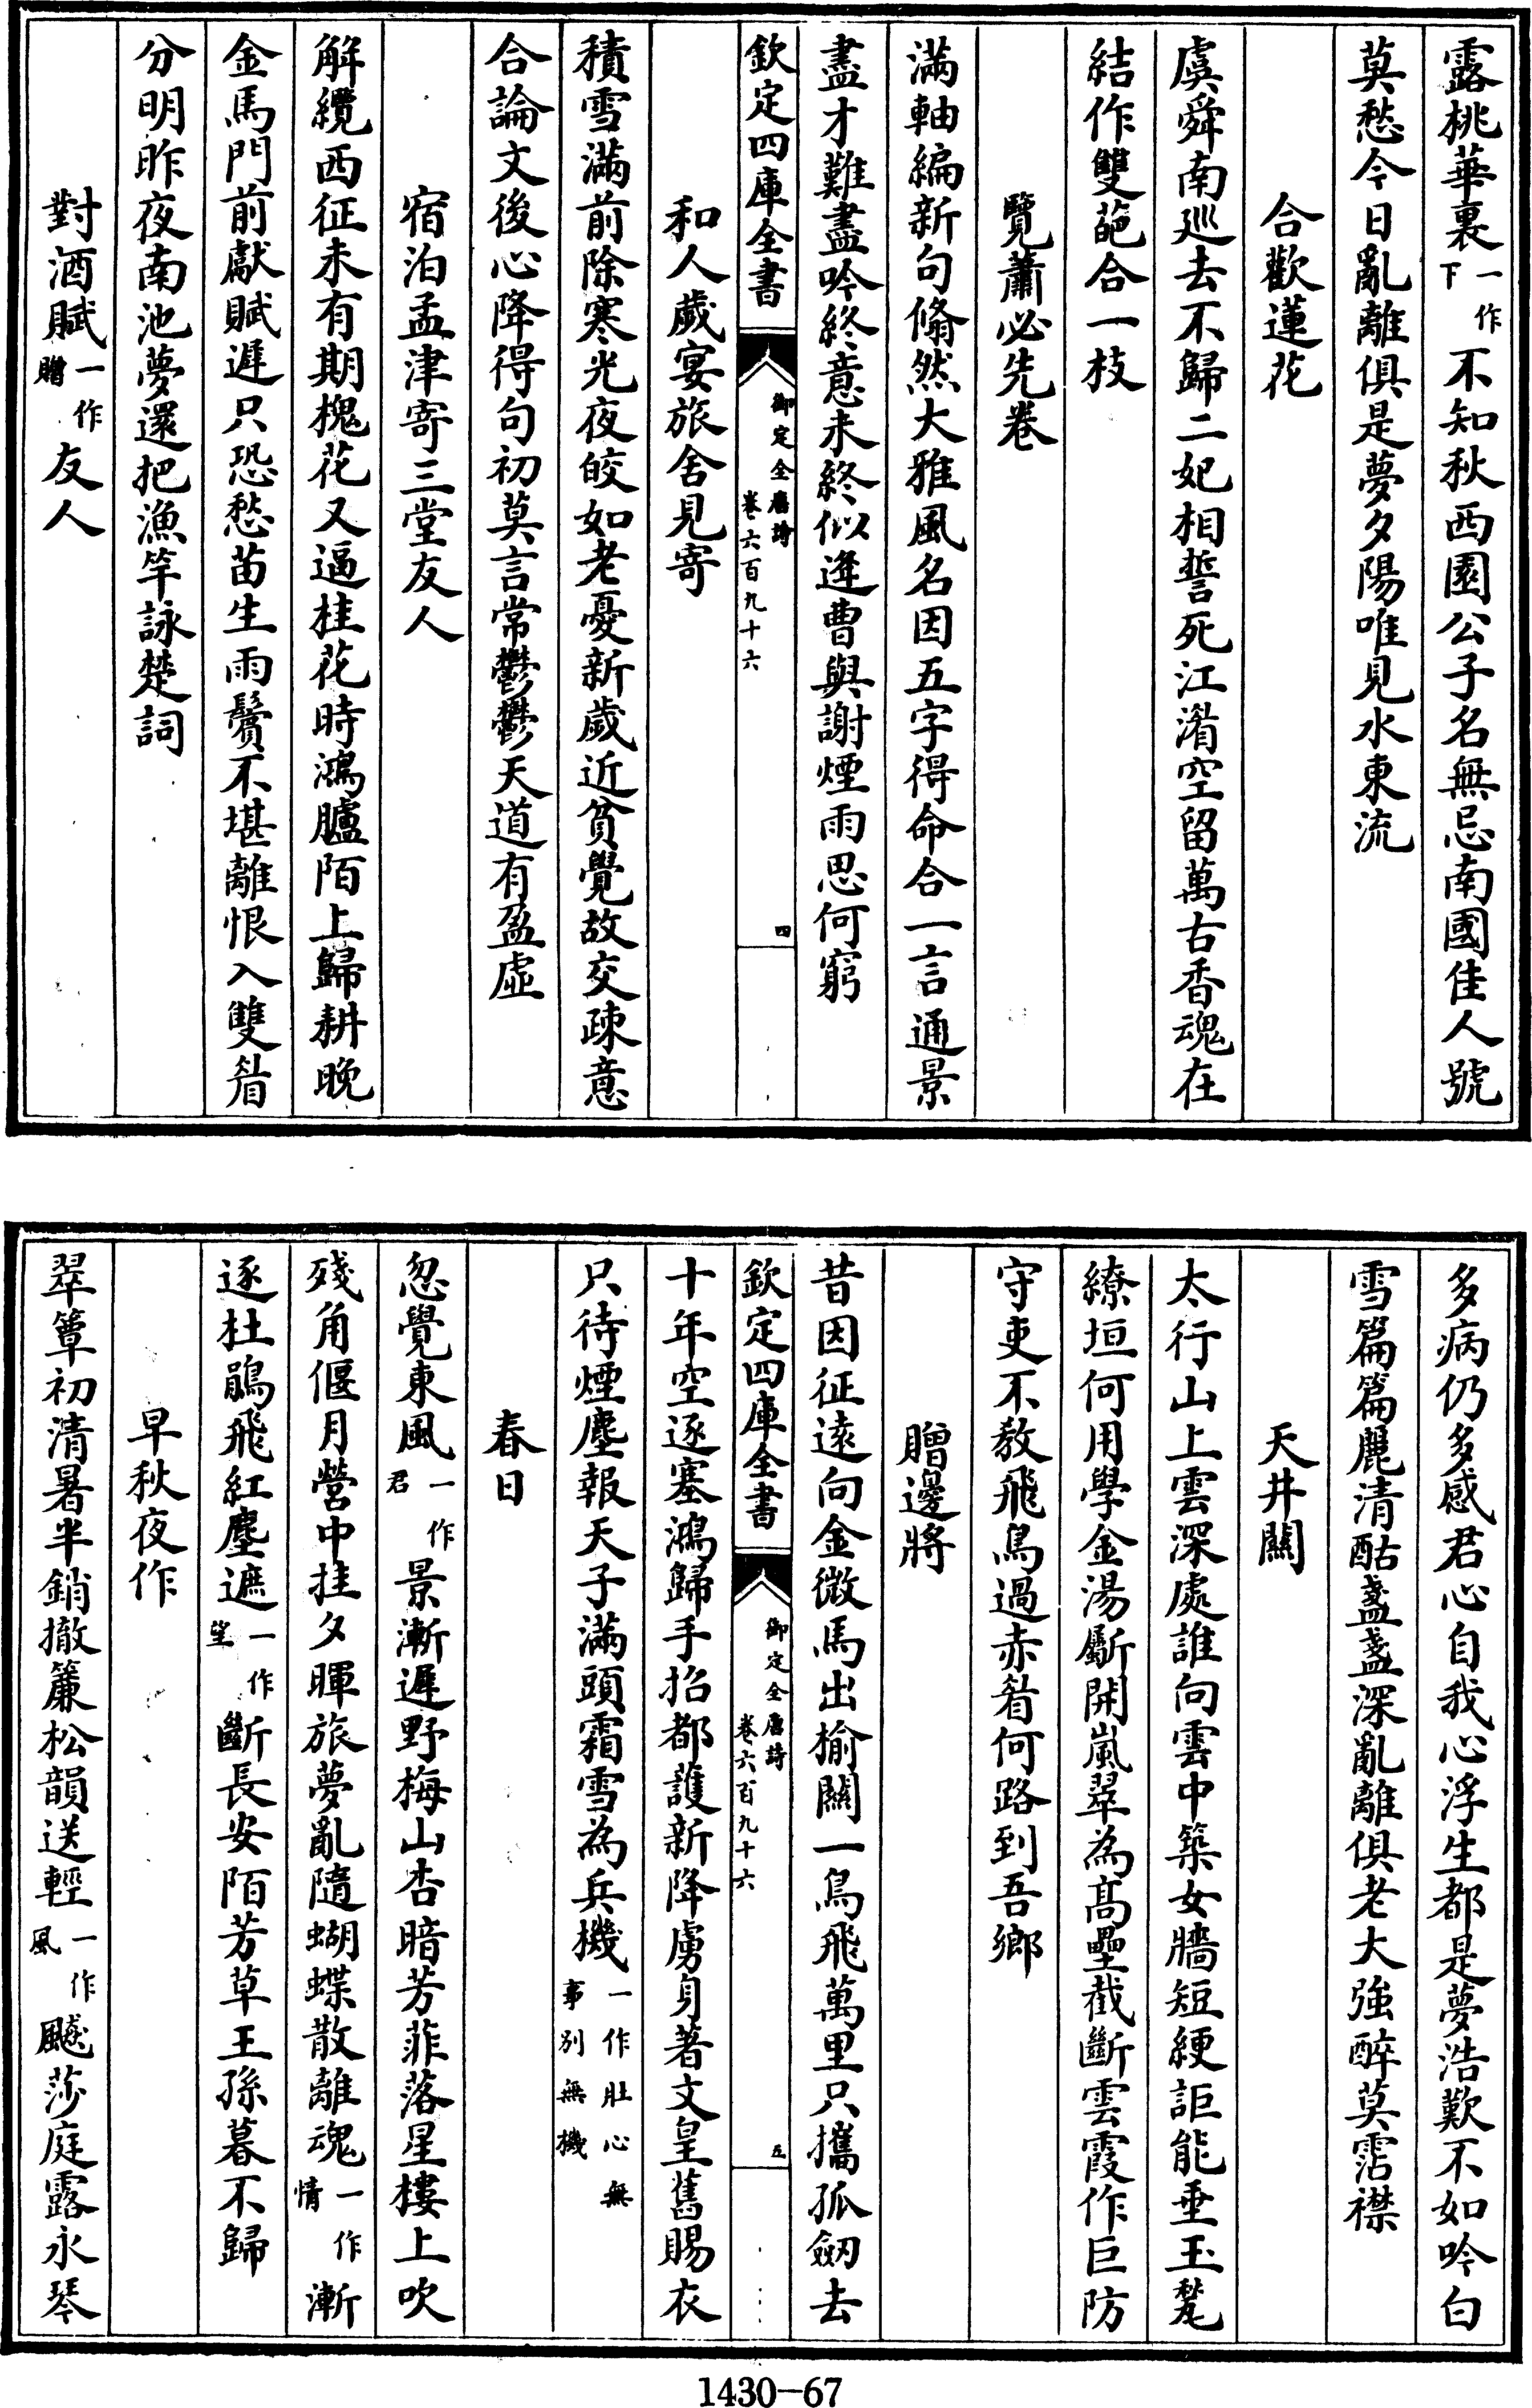 露桃華裏一作下不知秋西園公子名無忌南國佳人號
莫愁今日亂離俱是夢夕陽唯見水東流
合歡蓮花
虞舜南巡去不歸二妃相誓死江湄空留萬古香魂在
結作雙葩合一枝
覽蕭必先卷
滿軸編新句翛然大雅風名因五字得命合一言通景
盡才難盡吟終意未終似逢曹與謝煙雨思何窮
欽定四庫全書
御定全唐詩
卷六百九十六
四
和人歲宴旅舍見寄
積雪滿前除寒光夜皎如老憂新歲近貧覺故交疎意
合論文後心降得句初莫言常鬱鬱天道有盈虛
宿泊孟津寄三堂友人
解纜西征未有期槐花又逼桂花時鴻臚陌上歸耕晚
金馬門前獻賦遲只恐愁苗生雨鬢不堪離恨入雙眉
分明昨夜南池夢還把漁竿詠楚詞
對酒賦一作贈友人
多病仍多感君心自我心浮生都是夢浩歎不如吟白
雪篇篇麗清酤盞盞深亂離俱老大強醉莫霑襟
天井關
太行山上雲深處誰向雲中築女牆短綆詎能垂玉甃
繚垣何用學金湯斸開嵐翠為高壘截斷雲霞作巨防
守吏不敎飛鳥過赤眉何路到吾鄉
贈邊將
昔因征逺向金微馬出榆關一鳥飛萬里只攜孤劒去
欽定四庫全書
御定全唐詩
卷六百九十六
五
十年空逐塞鴻歸手招都護新降虜身著文皇舊賜衣
只待煙塵報天子滿頭霜雪為兵機一作壯心無事別無機
春日
忽覺東風一作君景漸遲野梅山杏暗芳菲落星樓上吹
殘角偃月營中挂夕暉旅夢亂隨蝴蝶散離魂一作情漸
逐杜鵑飛紅塵遮一作望斷長安陌芳草王孫暮不歸
早秋夜作
翠簟初清暑半銷撤簾松韻送輕一作風飈莎庭露永琴
1430-67